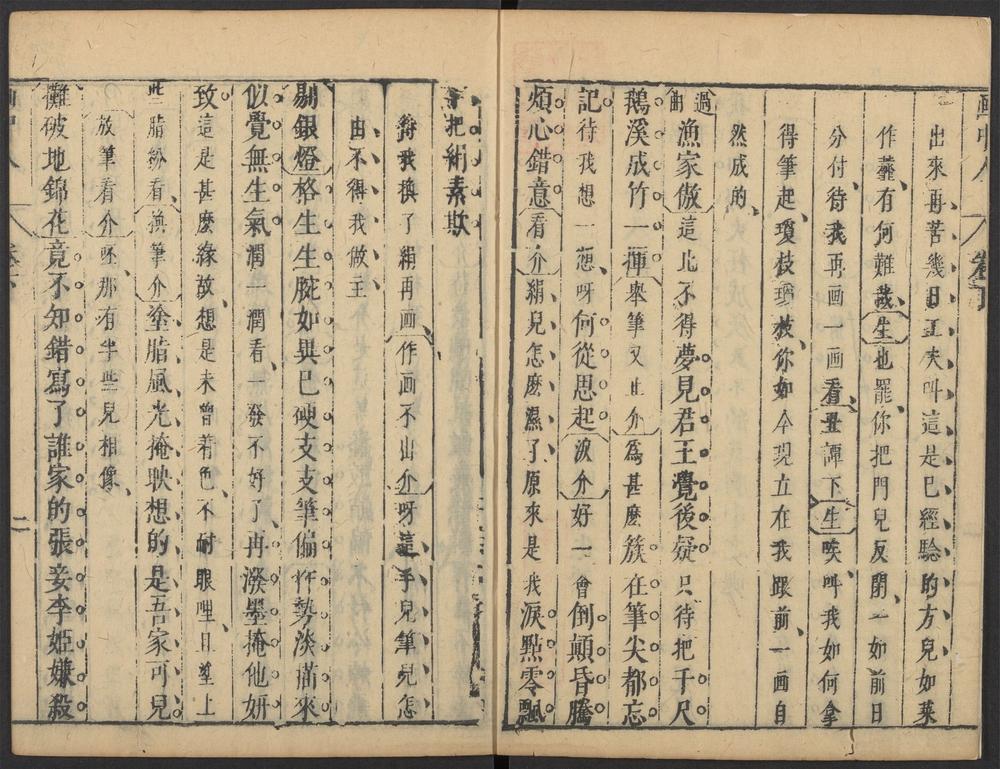 畫中人 卷下
出來再苦幾日工夫叫這是已經騐的方兒如菓
作難有何難哉生也罷你把門兒反閉一如前日
分付待我再画一画看丑諢下生唉呌我如何拿
得筆起瓊枝瓊枝你如今現立在我跟前一画自
然成的
過曲漁家傲這北不得夢見君王覺後疑只待把千尺
鵝溪成竹一揮舉筆又止介爲甚麽簇在筆尖都忘
記待我想一想呀何從思起淚介好一會倒顛昏騰
煩心錯意看介絹兒怎麽濕了原來是我淚點零飄
把絹素欺
待我換了絹再画作画不出介呀這手兒筆兒怎
由不得我做主
剔銀燈格生生腕如異已硬支支筆偏作勢淡描來
似覺無生氣潤一潤看一發不好了再潑墨掩他妍
致這是甚麽緣故想是未曾着色不耐眼哩且塗上
些脂粉看換筆介塗脂風光掩映想的是吾家可兒
放筆看介呸那有半些兒相像
攤破地錦花竟不知錯寫了誰家的張妾李姬嫌殺
卷下 二